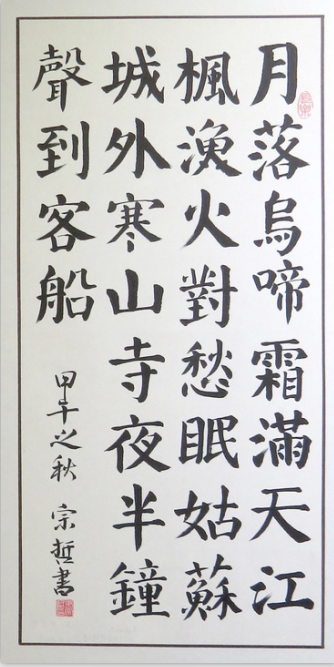 月落烏啼霜滿天江
楓漁火對愁眠姑蘇
城外寒山寺夜半鐘
聲到客船
甲午之秋 宗哲書